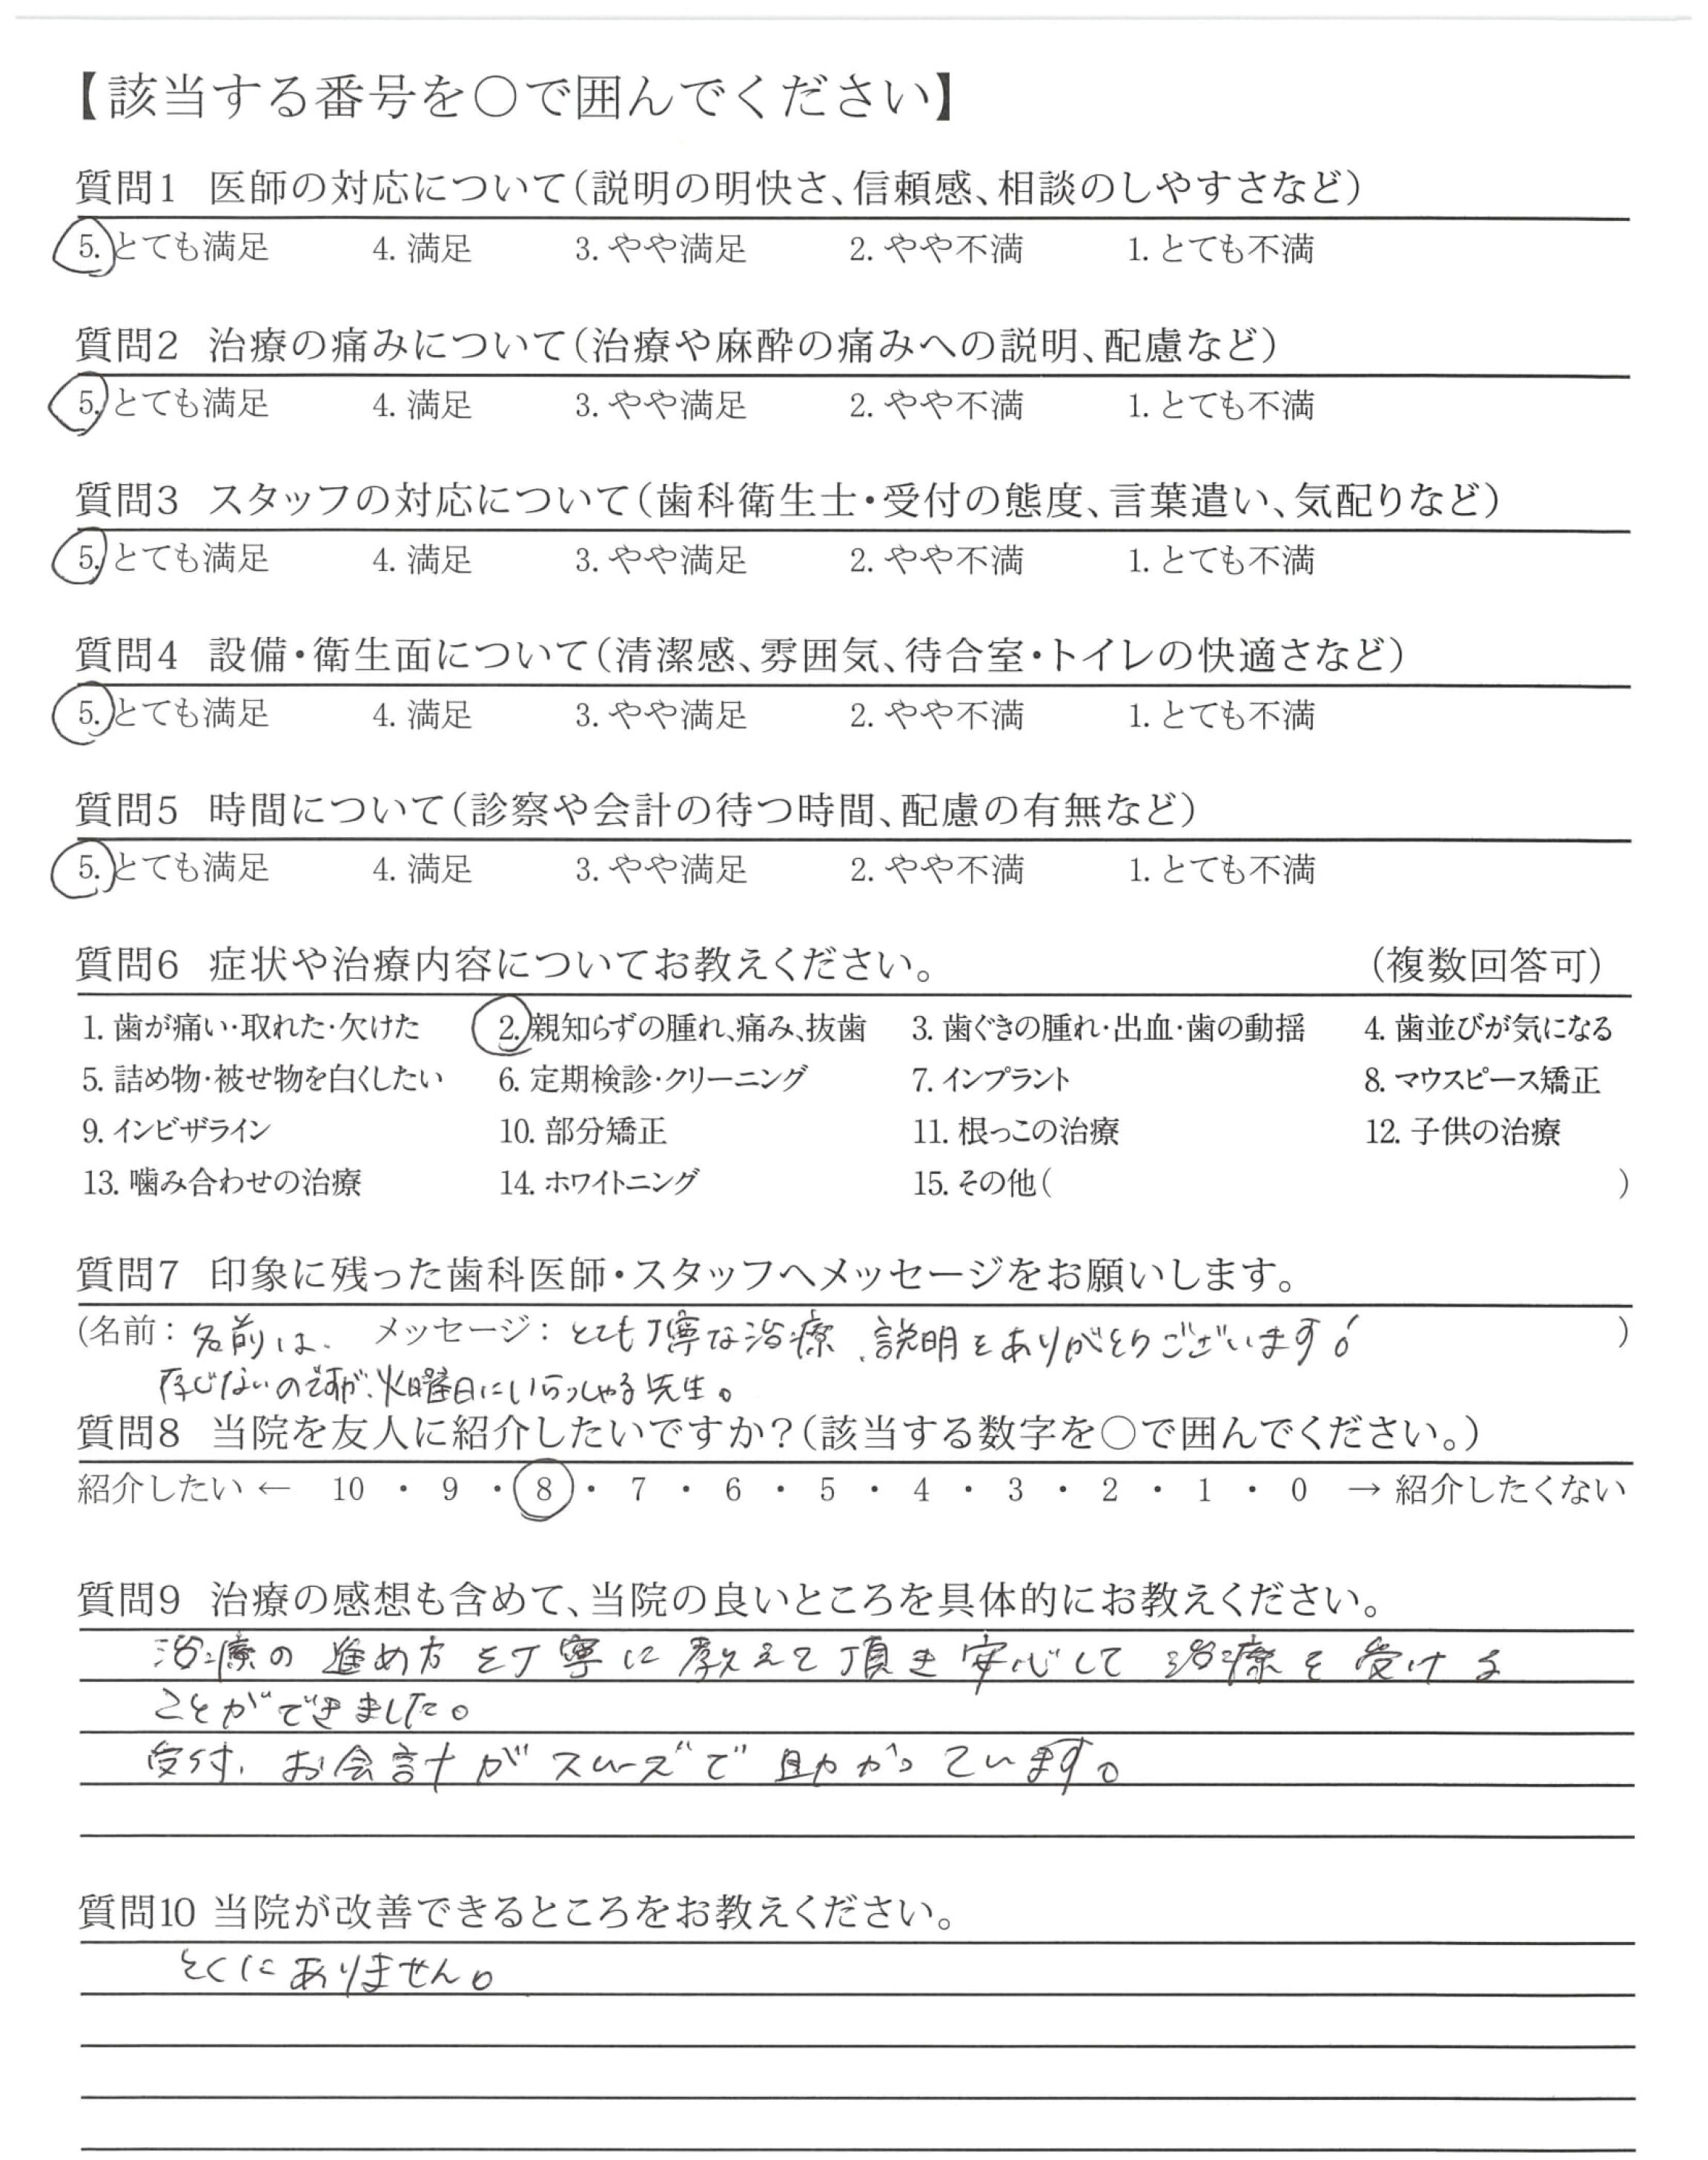 【該当する番号を○で囲んでください】
質問1 医師の対応について(説明の明快さ、信頼感、相談のしやすさなど)
5. とても満足 4. 満足 3. やや満足 2. やや不満 1. とても不満
質問2 治療の痛みについて(治療や麻酔の痛みへの説明、配慮など)
5. とても満足 4. 満足 3. やや満足 2. やや不満 1. とても不満
質問3 スタッフの対応について(歯科衛生士・受付の態度、言葉遣い、気配りなど)
5. とても満足 4. 満足 3. やや満足 2. やや不満 1. とても不満
質問4 設備・衛生面について(清潔感、雰囲気、待合室・トイレの快適さなど)
5. とても満足 4. 満足 3. やや満足 2. やや不満 1. とても不満
質問5 時間について(診察や会計の待つ時間、配慮の有無など)
5. とても満足 4. 満足 3. やや満足 2. やや不満 1. とても不満
質問6 症状や治療内容についてお教えください。 (複数回答可)
1. 歯が痛い・取れた・欠けた 2. 親知らずの腫れ、痛み、抜歯 3. 歯ぐきの腫れ・出血・歯の動揺 4. 歯並びが気になる
5. 詰め物・被せ物を白くしたい 6. 定期検診・クリーニング 7. インプラント 8. マウスピース矯正
9. インビザライン 10. 部分矯正 11. 根っこの治療 12. 子供の治療
13. 噛み合わせの治療 14. ホワイトニング 15. その他( )
質問7 印象に残った歯科医師・スタッフへメッセージをお願いします。
(名前: 名前は、 メッセージ: とても丁寧な治療、説明をありがとうございます! )
存じないのですが、火曜日にいらっしゃる先生。
質問8 当院を友人に紹介したいですか?(該当する数字を○で囲んでください。)
紹介したい ← 10 ・ 9 ・ 8 ・ 7 ・ 6 ・ 5 ・ 4 ・ 3 ・ 2 ・ 1 ・ 0 → 紹介したくない
質問9 治療の感想も含めて、当院の良いところを具体的にお教えください。
治療の進め方を丁寧に教えて頂き安心して治療を受ける
ことができました。
受付、お会計がスムーズで助かっています。
質問10 当院が改善できるところをお教えください。
とくにありません。